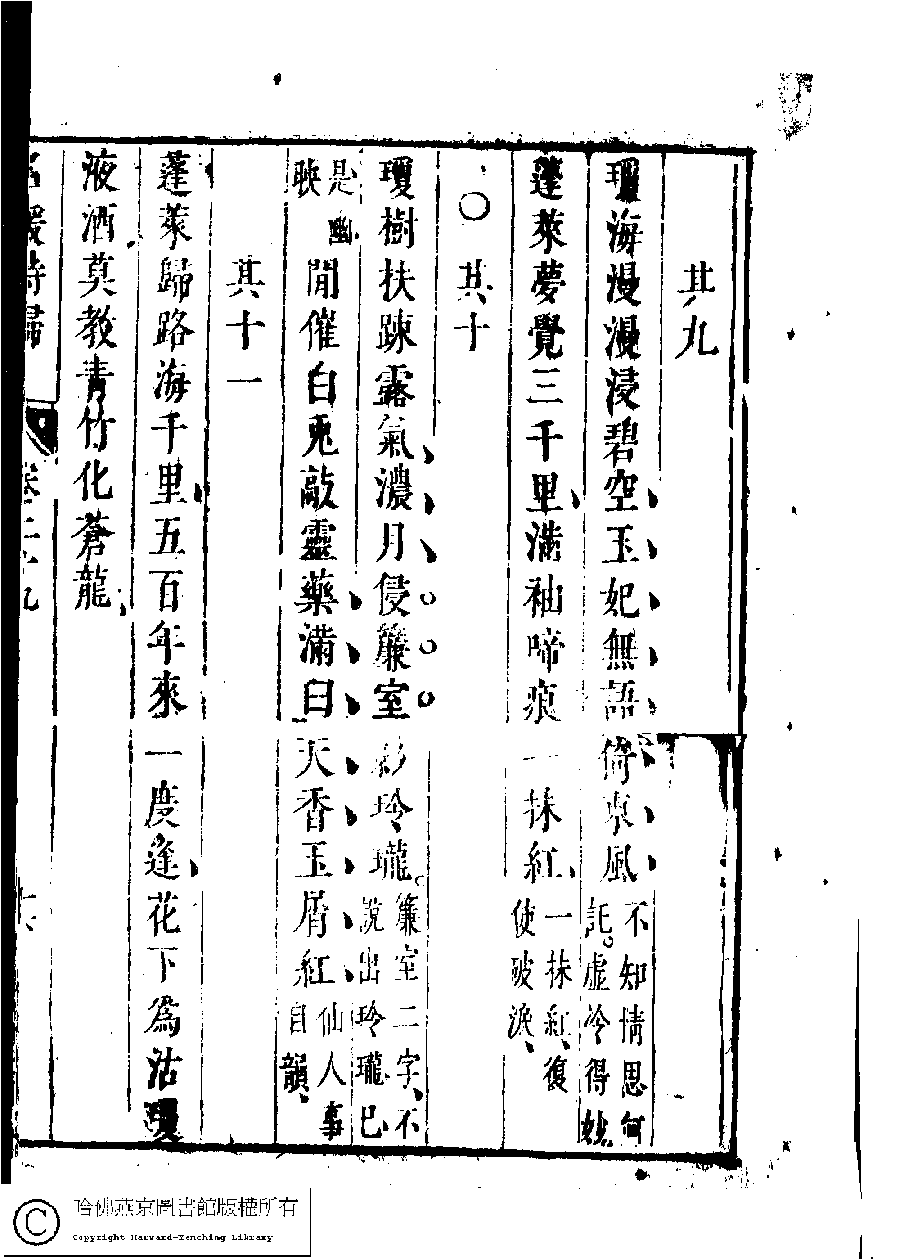 其九
瓊海漫漫浸碧空玉妃無語倚東風不知情思何
託虛冷得妙
蓬萊夢覺三千里滿袖啼痕一抹紅一抹紅復
使破淚
○其十
瓊樹扶踈露氣濃月侵簾室影玲瓏簾室二字不
說出玲瓏已
是幽
映閒催白兎敲靈藥滿臼天香玉屑紅仙人事
自韻
其十一
蓬萊歸路海千里五百年來一度逢花下為沽瓊
液酒莫教青竹化蒼龍
名媛詩歸 卷二十九 十六
哈佛燕京圖書館版權所有
Copyright Harvard-Yenching Library